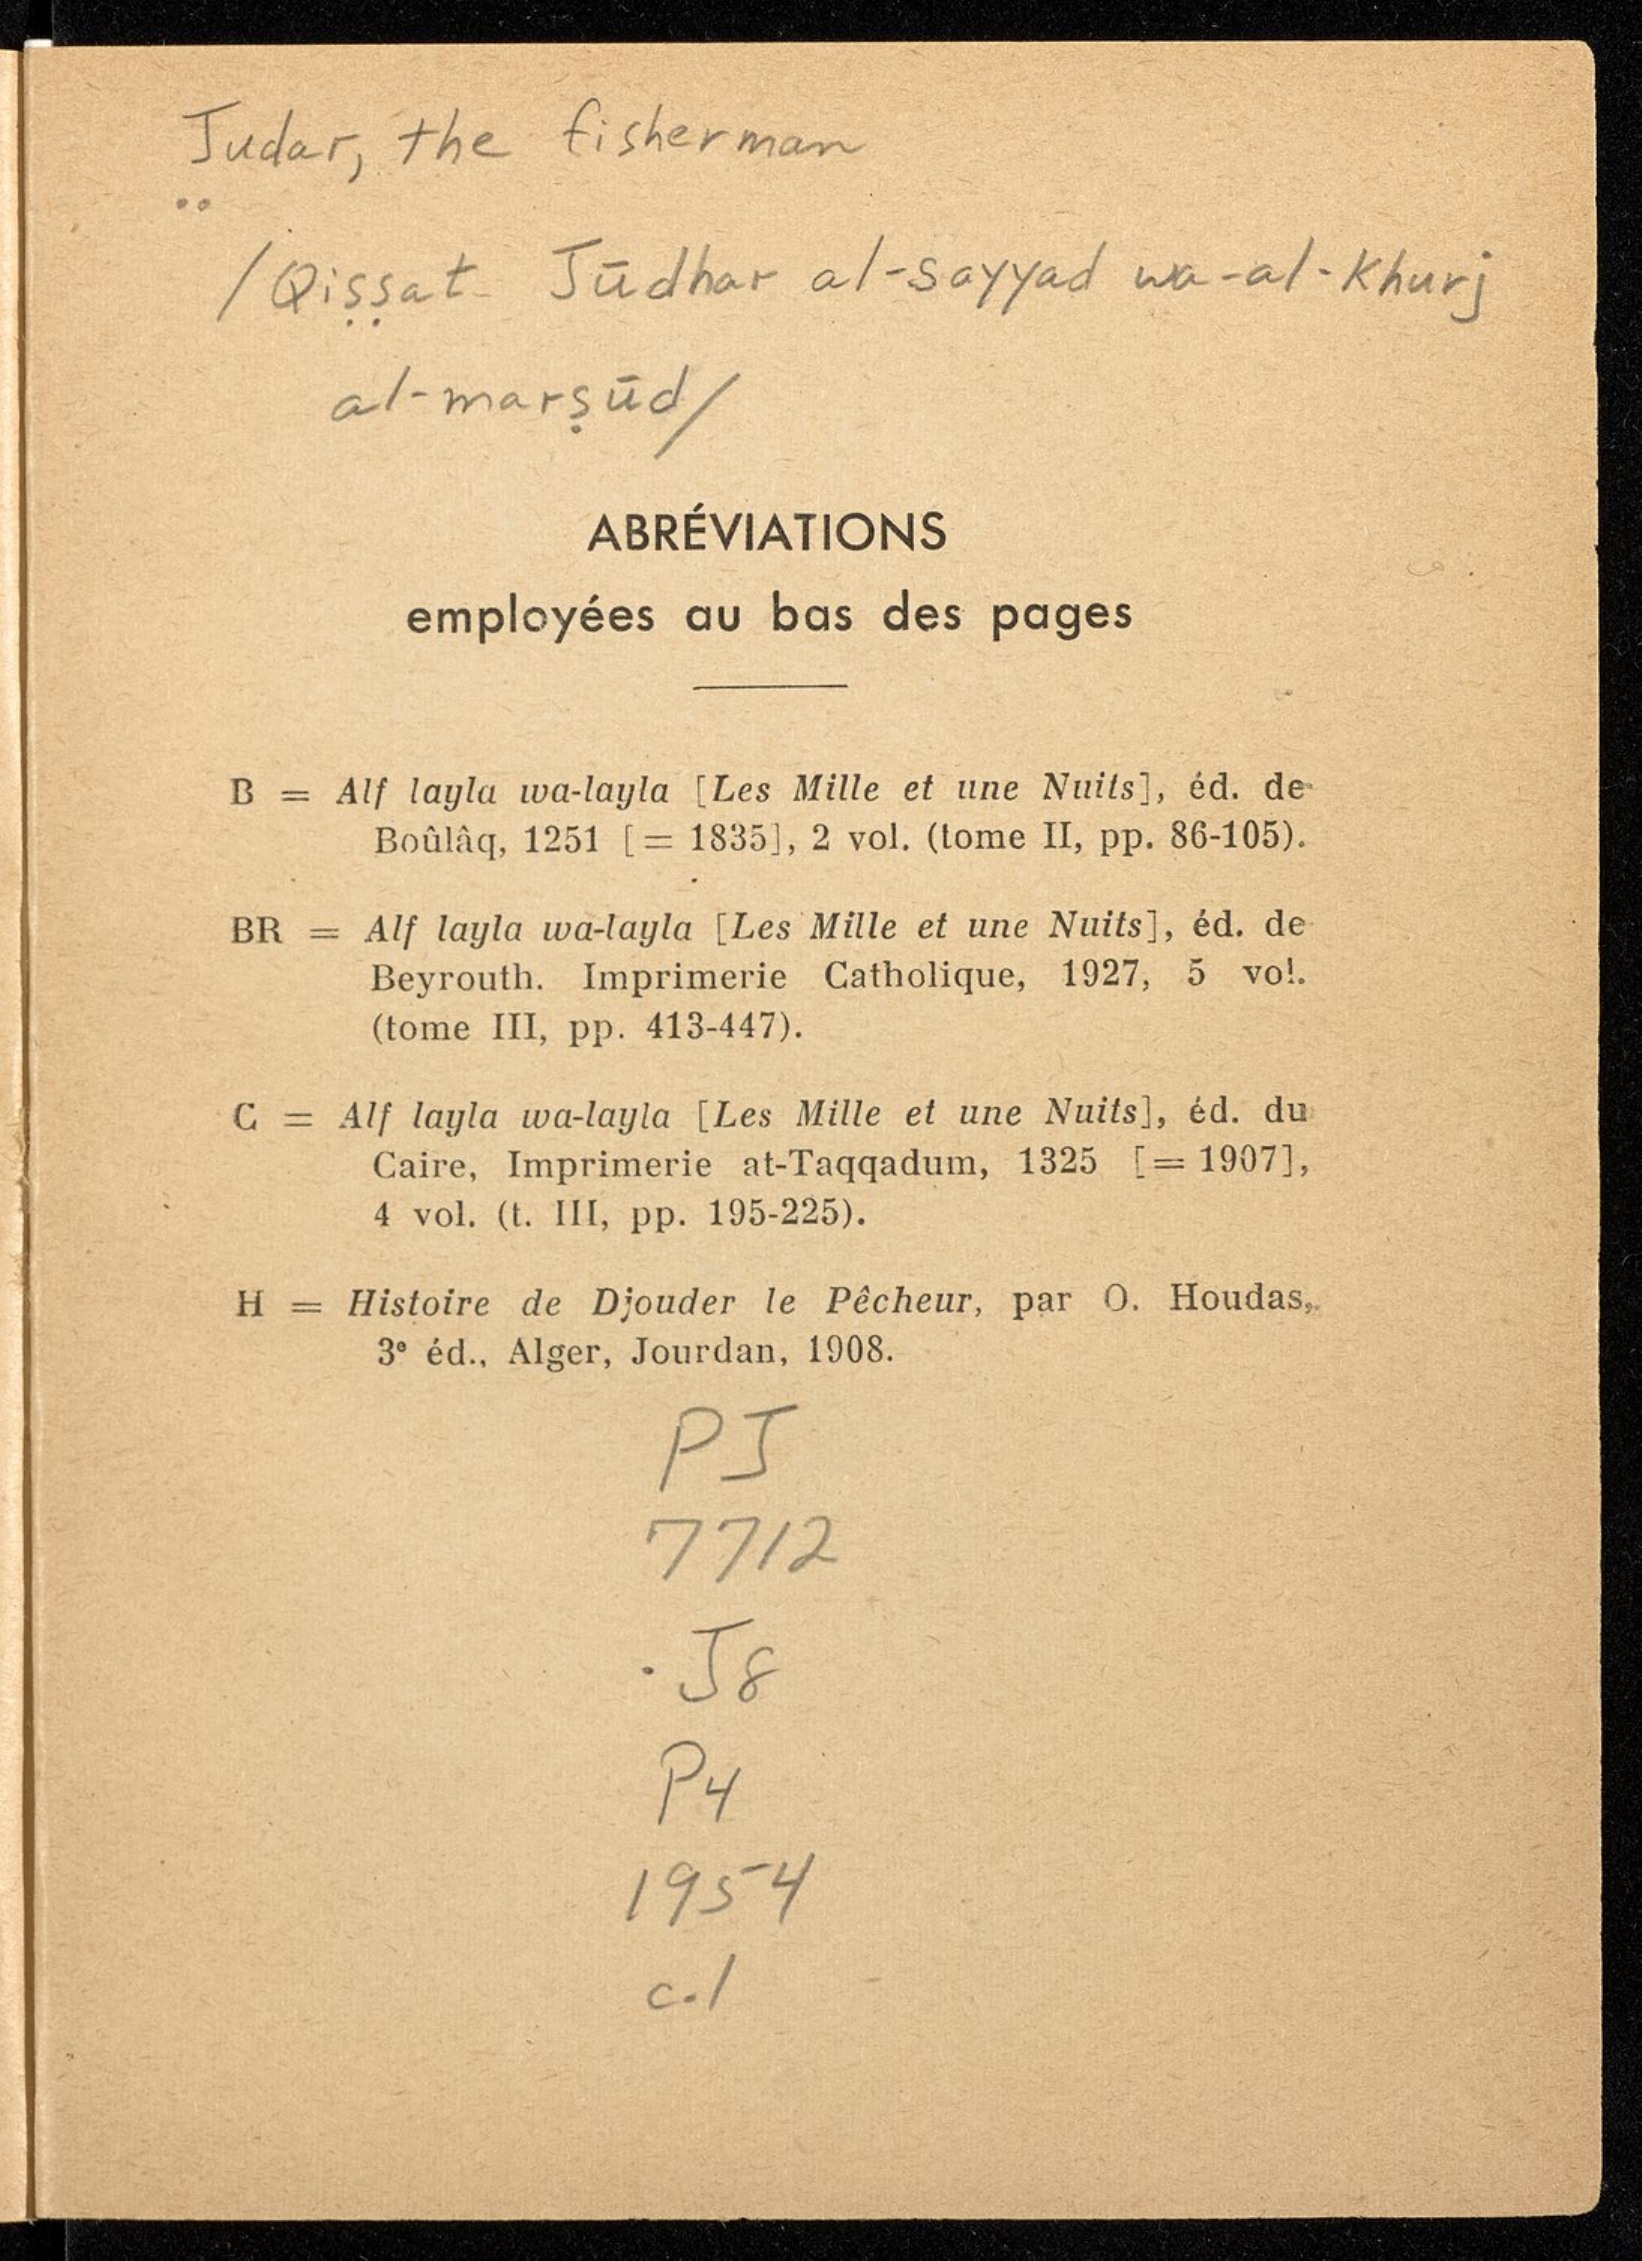 Judar, the fisherman
/Qiṣṣat Jūdhar al-sayyad wa-al-Khurj
al-marṣūd/
ABRÉVIATIONS
employées au bas des pages
B = Alf layla wa-layla [Les Mille et une Nuits], éd. de
Boûlâq, 1251 [= 1835], 2 vol. (tome II, pp. 86-105).
BR = Alf layla wa-layla [Les Mille et une Nuits], éd. de
Beyrouth. Imprimerie Catholique, 1927, 5 vol.
(tome III, pp. 413-447).
C = Alf layla wa-layla [Les Mille et une Nuits], éd. du
Caire, Imprimerie at-Taqqadum, 1325 [= 1907],
4 vol. (t. III, pp. 195-225).
H = Histoire de Djouder le Pêcheur, par O. Houdas,
3e éd., Alger, Jourdan, 1908.
PJ
7712
.J8
P4
1954
c.1